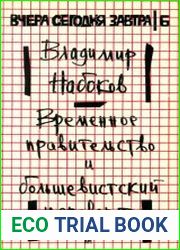 ВЧЕРА СЕГОДНЯ ЗАВТРА Б
Владимир
Набоков
Временное
правительство
и
большевистский
ECO TRIAL BOOK